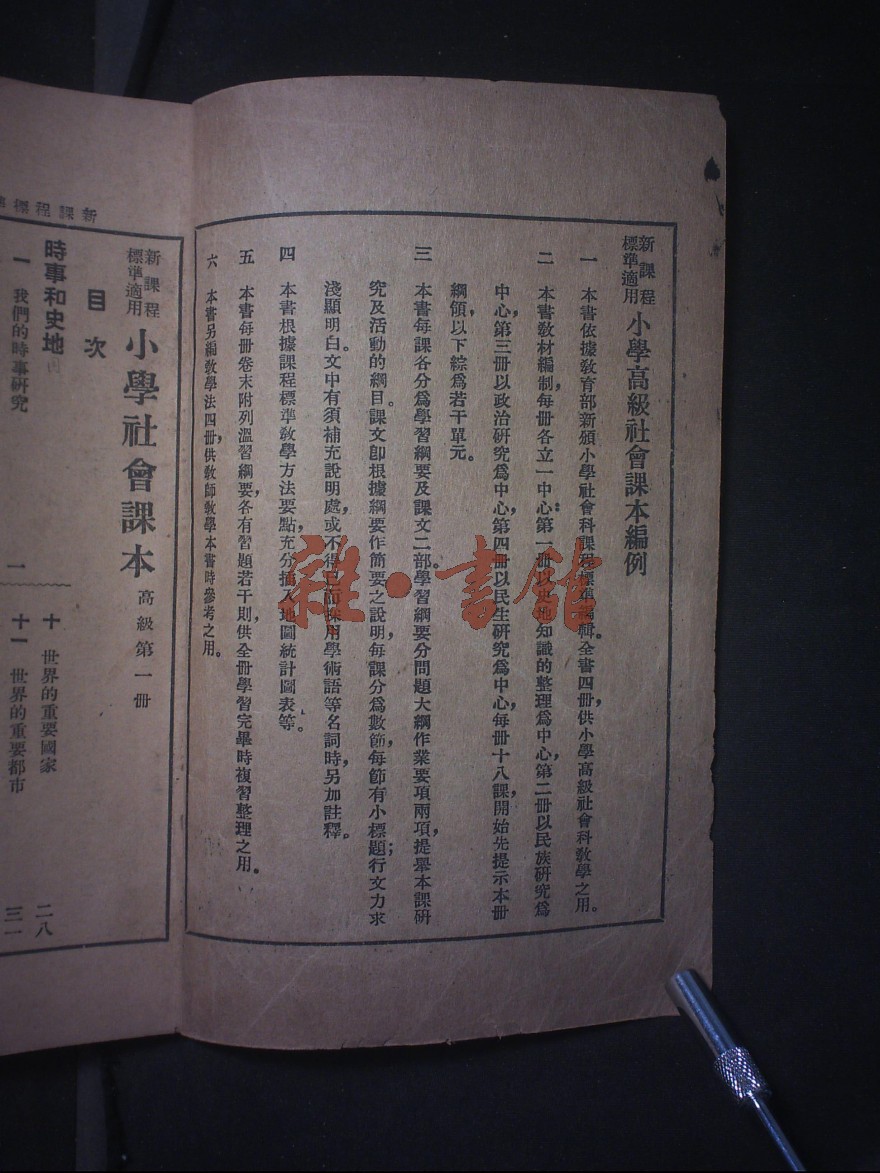 新課程標準適用 小學高級社會課本編例
一 本書依據教育部新頒小學社會科課程標準編輯。全書四冊，供小學高級社會科教學之用。
二 本書教材編制，每冊各立一中心：第一冊以史地知識的整理爲中心，第二冊以民族研究爲
中心，第三冊以政治研究爲中心，第四冊以民生研究爲中心，每冊十八課，開始先提示本冊
綱領，以下綜爲若干單元。
三 本書每課各分爲學習綱要及課文二部。學習綱要分問題大綱作業要項兩項，提舉本課研
究及活動的綱目。課文卽根據綱要作簡要之說明，每課分爲數節，每節有小標題；行文力求
淺顯明白。文中有須補充說明處，或不得已而採用學術語等名詞時，另加註釋。
四 本書根據課程標準教學方法要點，充分插入地圖統計圖表等。
五 本書每冊卷末附列溫習綱要，各有習題若干則，供全冊學習完畢時複習整理之用。
六 本書另編教學法四冊，供教師教學本書時參考之用。
雜·書館
新課程標準
新課程標準適用 小學社會課本 高級第一冊
目次
時事和史地
一 我們的時事研究 一
十 世界的重要國家 二八
十一 世界的重要都市 三一